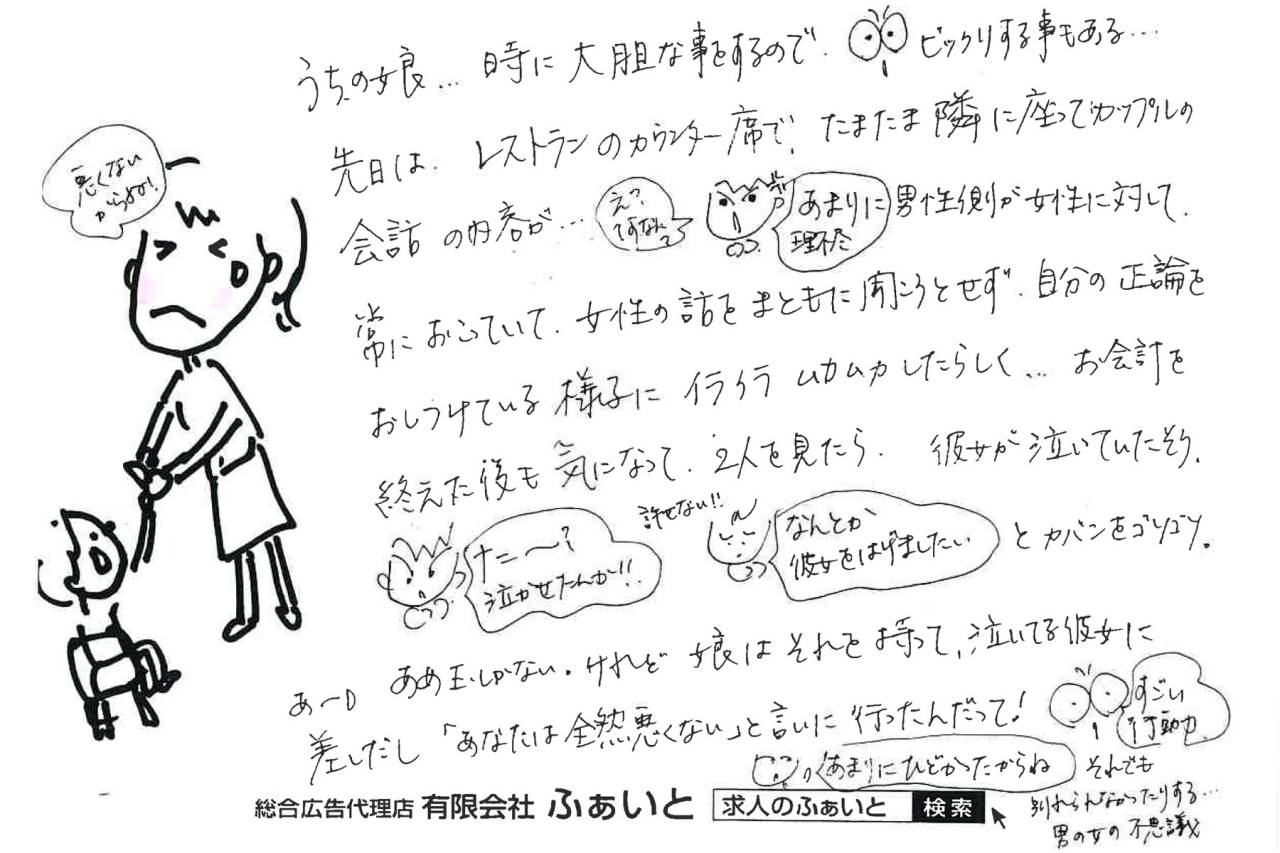 うちの娘… 時に大胆な事をするので、ビックリする事もある…
悪くない
からね!
先日は、レストランのカウンター席で、たまたま隣に座ってカップルの
会話の内容が…
え?
ですなんて
あまりに
理不尽
男性側が女性に対して、
常におこっていて、女性の話をまともに聞こうとせず、自分の正論を
おしつけている様子にイライラムカムカしたらしく… お会計を
終えた後も気になって、2人を見たら、彼女が泣いていたそう。
ナニ〜?
泣かせたんか!!
許せない!!
なんとか
彼女をはげましたい
とカバンをゴソゴソ。
あ〜り あめ玉しかない。けれど娘はそれを持って、泣いてる彼女に
差しだし「あなたは全然悪くない」と言いに行ったんだって!
すごい
行動力
あまりにひどかったからね
それでも
別れられなかったりする…
男の女の不思議
総合広告代理店 有限会社 ふぁいと 求人のふぁいと 検索